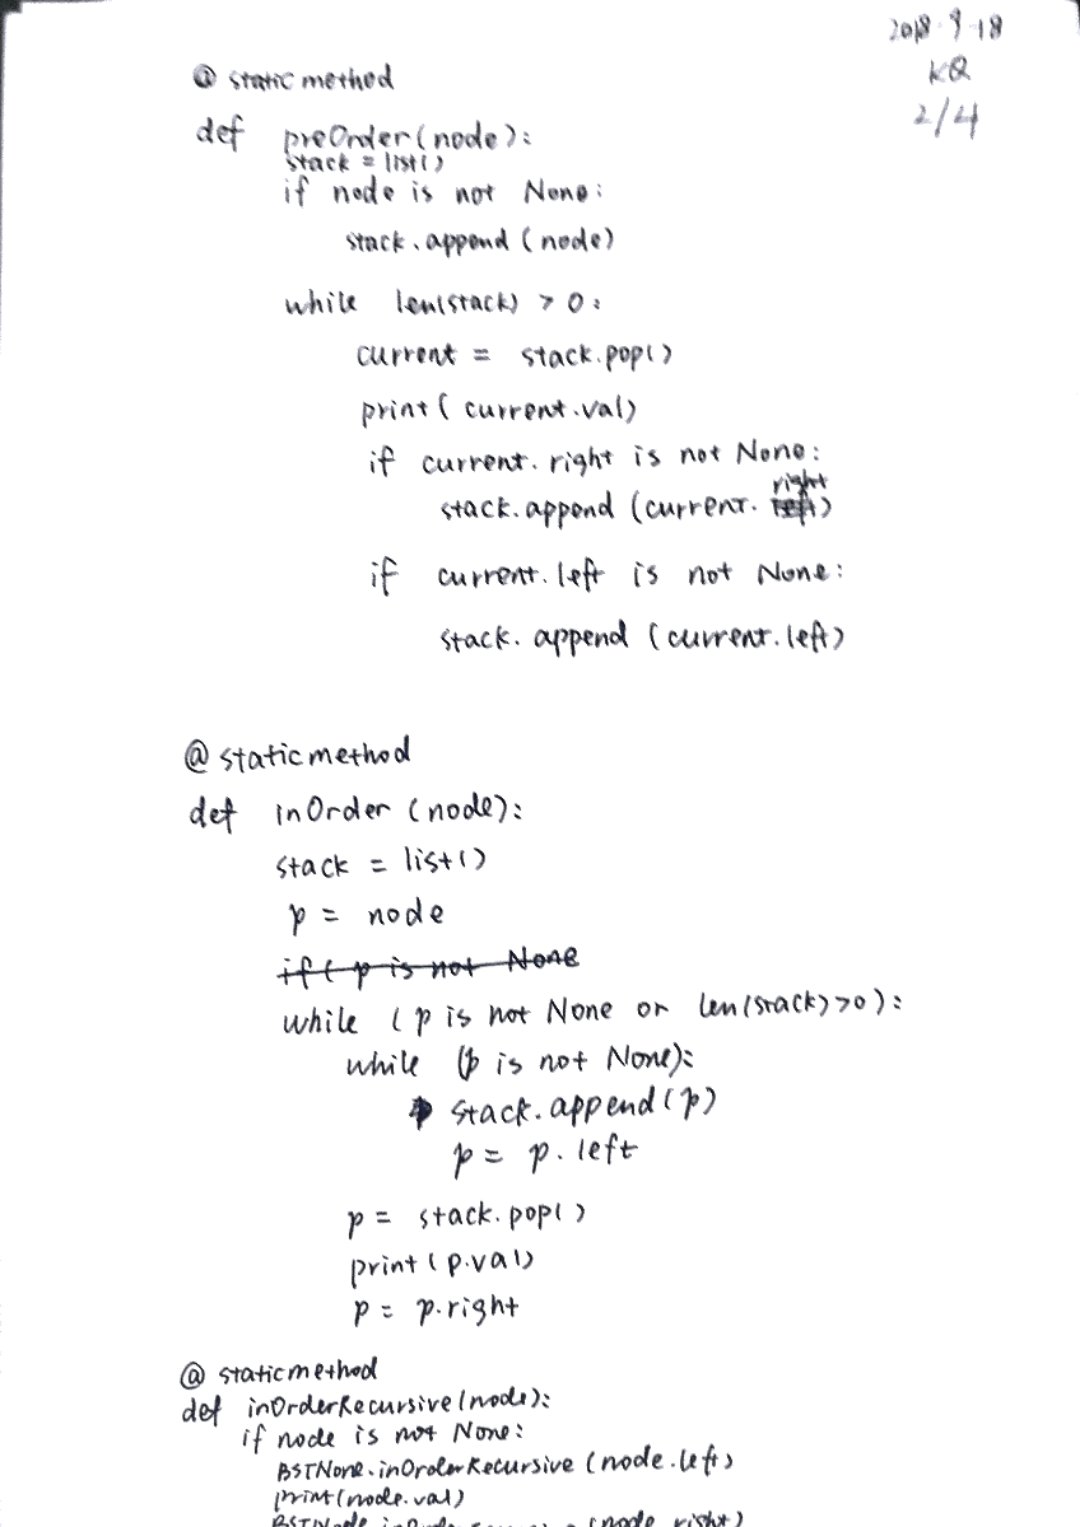 2018.9.18
KQ
2/4
@ static method
def preOrder(node):
stack = list()
if node is not None:
stack.append(node)
while len(stack) > 0:
current = stack.pop()
print(current.val)
if current.right is not None:
right
stack.append(current.left)
if current.left is not None:
stack.append(current.left)
@staticmethod
def inOrder(node):
stack = list()
p = node
if( p is not None
while (p is not None or len(stack)>0):
while (p is not None):
stack.append(p)
p = p.left
p = stack.pop()
print(p.val)
p = p.right
@staticmethod
def inOrderRecursive(node):
if node is not None:
BSTNone.inOrderRecursive(node.left)
print(node.val)
(node.right)